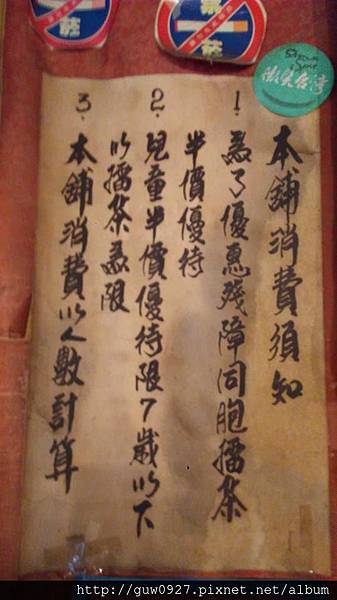 禁菸
微笑台灣
本舖消費須知
1. 為了優惠殘障同胞擂茶
半價優待
2. 兒童半價優待限7歲以下
以擂茶為限
3. 本舖消費以人數計算
http://guw0927.pixnet.net/album